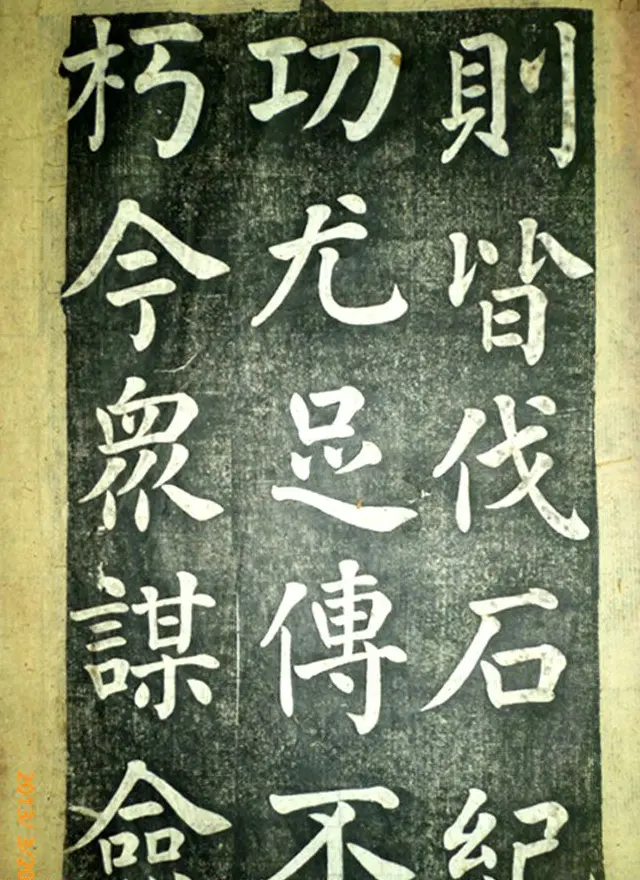 則皆伐石紀
功尤足傳不
朽今衆謀僉